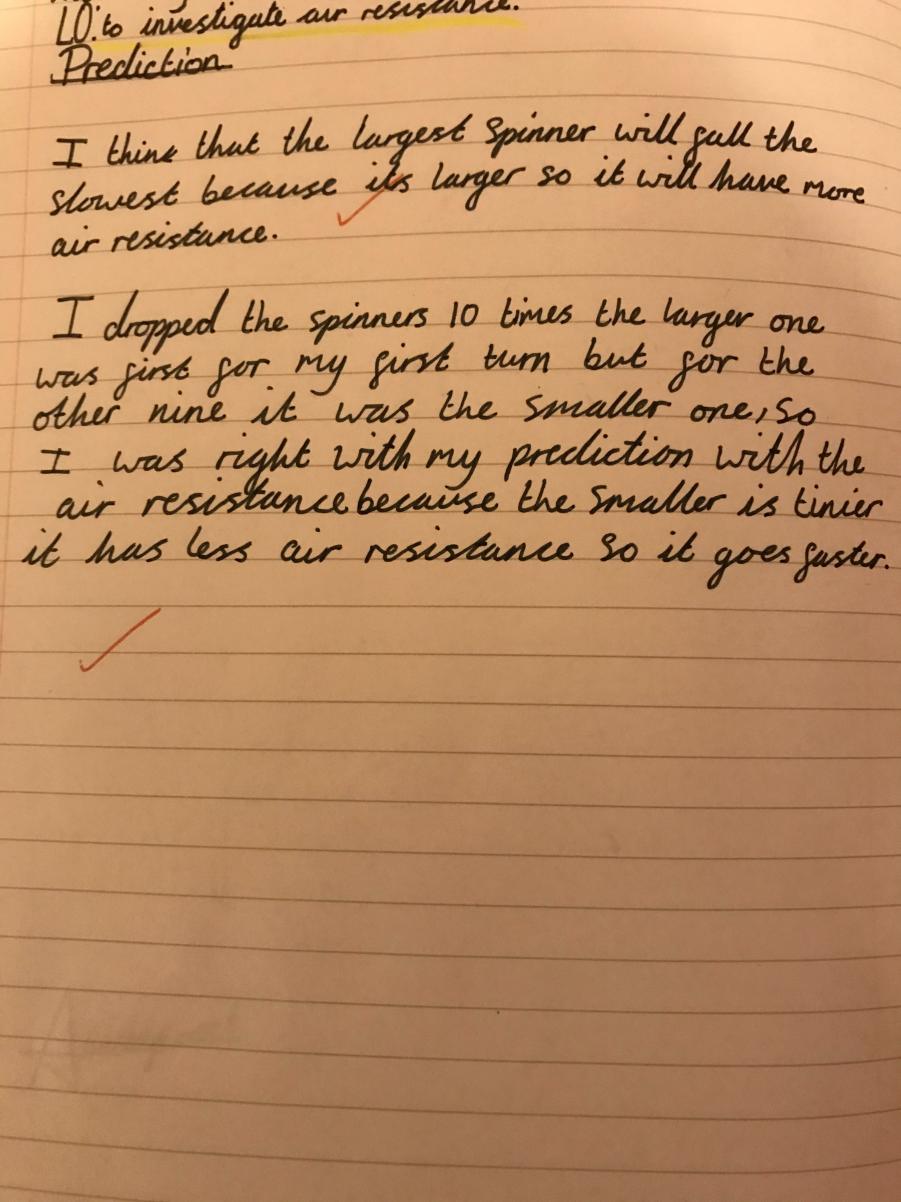 LO: to investigate air resistance.
Prediction
I think that the largest Spinner will fall the
slowest because its larger so it will have more
air resistance.
I dropped the spinners 10 times the larger one
was first for my first turn but for the
other nine it was the smaller one, so
I was right with my prediction with the
air resistance because the smaller is tinier
it has less air resistance so it goes faster.